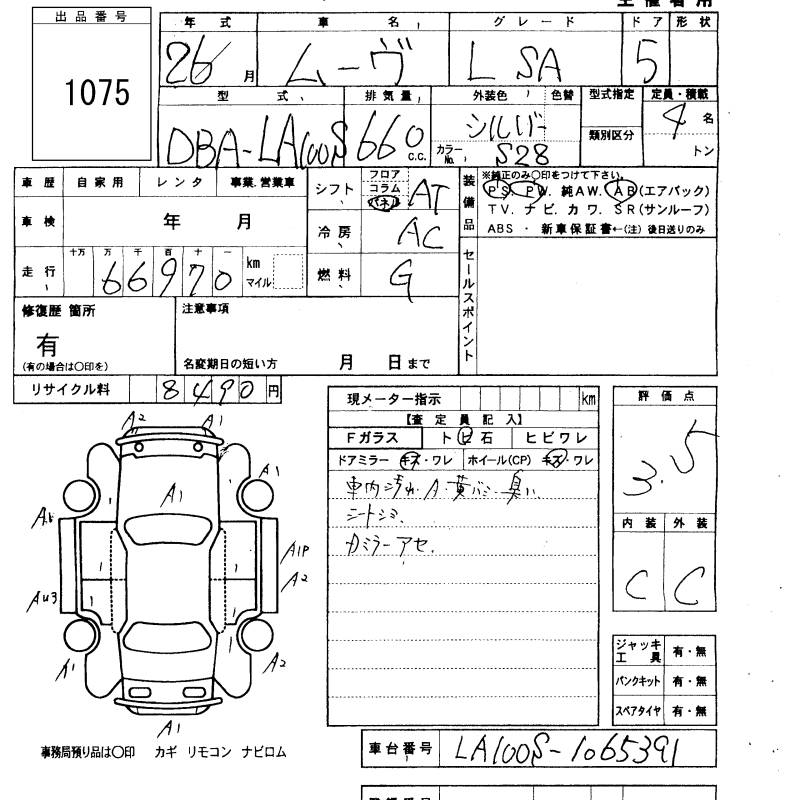 出品番号
1075
年式 車名 グレード ドア 形状
26 月 ムーヴ L SA 5
型式 排気量 外装色 色替 型式指定 定員・積載
DBA-LA100S 660 c.c. シルバー 類別区分 4 名
カラーNo. S28 トン
車歴 自家用 レンタ 事業.営業車
シフト フロア コラム パネル AT
装備品
※純正のみ〇印をつけて下さい。
PS. PW. 純AW. AB(エアバック)
TV. ナビ. カワ. SR(サンルーフ)
ABS ・ 新車保証書←(注) 後日送りのみ
車検 年 月
冷房 AC
走行 十万 万 千 百 十 一
66970 km マイル
燃料 G
セールスポイント
修復歴 箇所
有
(有の場合は〇印を)
注意事項
名変期日の短い方 月 日まで
リサイクル料 8490 円
現メーター指示 km
【査定員記入】
Fガラス ト ビ 石 ヒビワレ
ドアミラー キズ・ワレ ホイール(CP) キズ・ワレ
車内汚れ.A.黄バミ.臭い
シートシミ.
カミラーアセ.
評価点
3.5
内装 外装
C C
ジャッキ工具 有・無
パンクキット 有・無
スペアタイヤ 有・無
A2 A1
A1
A1
A1P
A2
AU3
A1 A2
A1
事務局預り品は〇印 カギ リモコン ナビロム
車台番号 LA100S-1065391